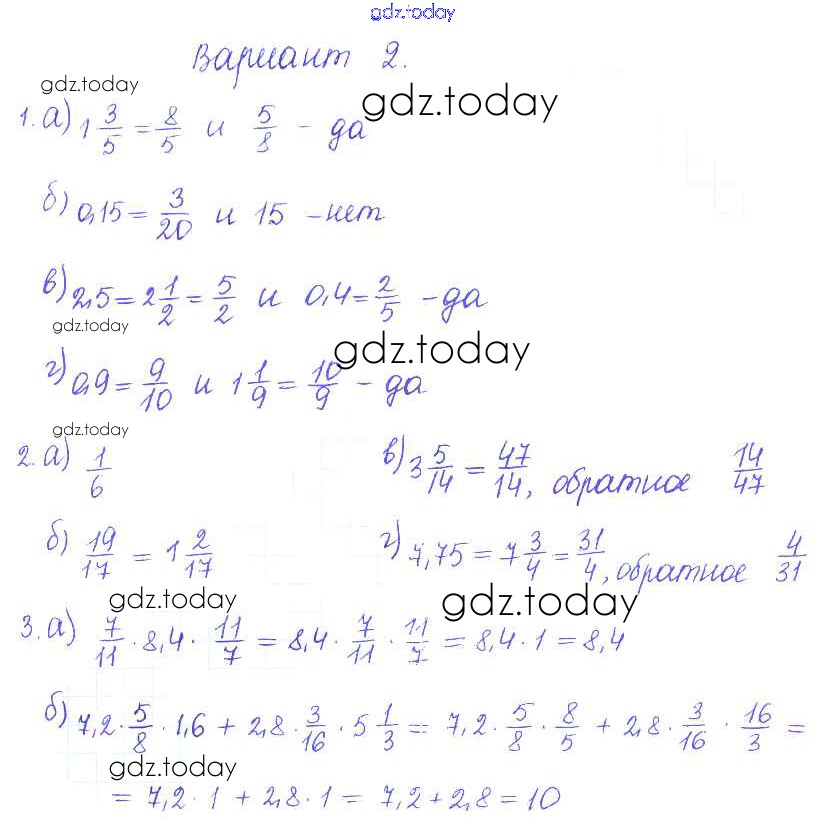 gdz.today
Вариант 2.
gdz.today gdz.today
1. а) 1 3/5 = 8/5 и 5/8 - да
б) 0,15 = 3/20 и 15 - нет
в) 2,5 = 2 1/2 = 5/2 и 0,4 = 2/5 - да
gdz.today gdz.today
г) 0,9 = 9/10 и 1 1/9 = 10/9 - да
gdz.today
2. а) 1/6 в) 3 5/14 = 47/14, обратное 14/47
б) 19/17 = 1 2/17 г) 7,75 = 7 3/4 = 31/4, обратное 4/31
gdz.today gdz.today
3. а) 7/11 · 8,4 · 11/7 = 8,4 · 7/11 · 11/7 = 8,4 · 1 = 8,4
б) 7,2 · 5/8 · 1,6 + 2,8 · 3/16 · 5 1/3 = 7,2 · 5/8 · 8/5 + 2,8 · 3/16 · 16/3 =
gdz.today
= 7,2 · 1 + 2,8 · 1 = 7,2 + 2,8 = 10